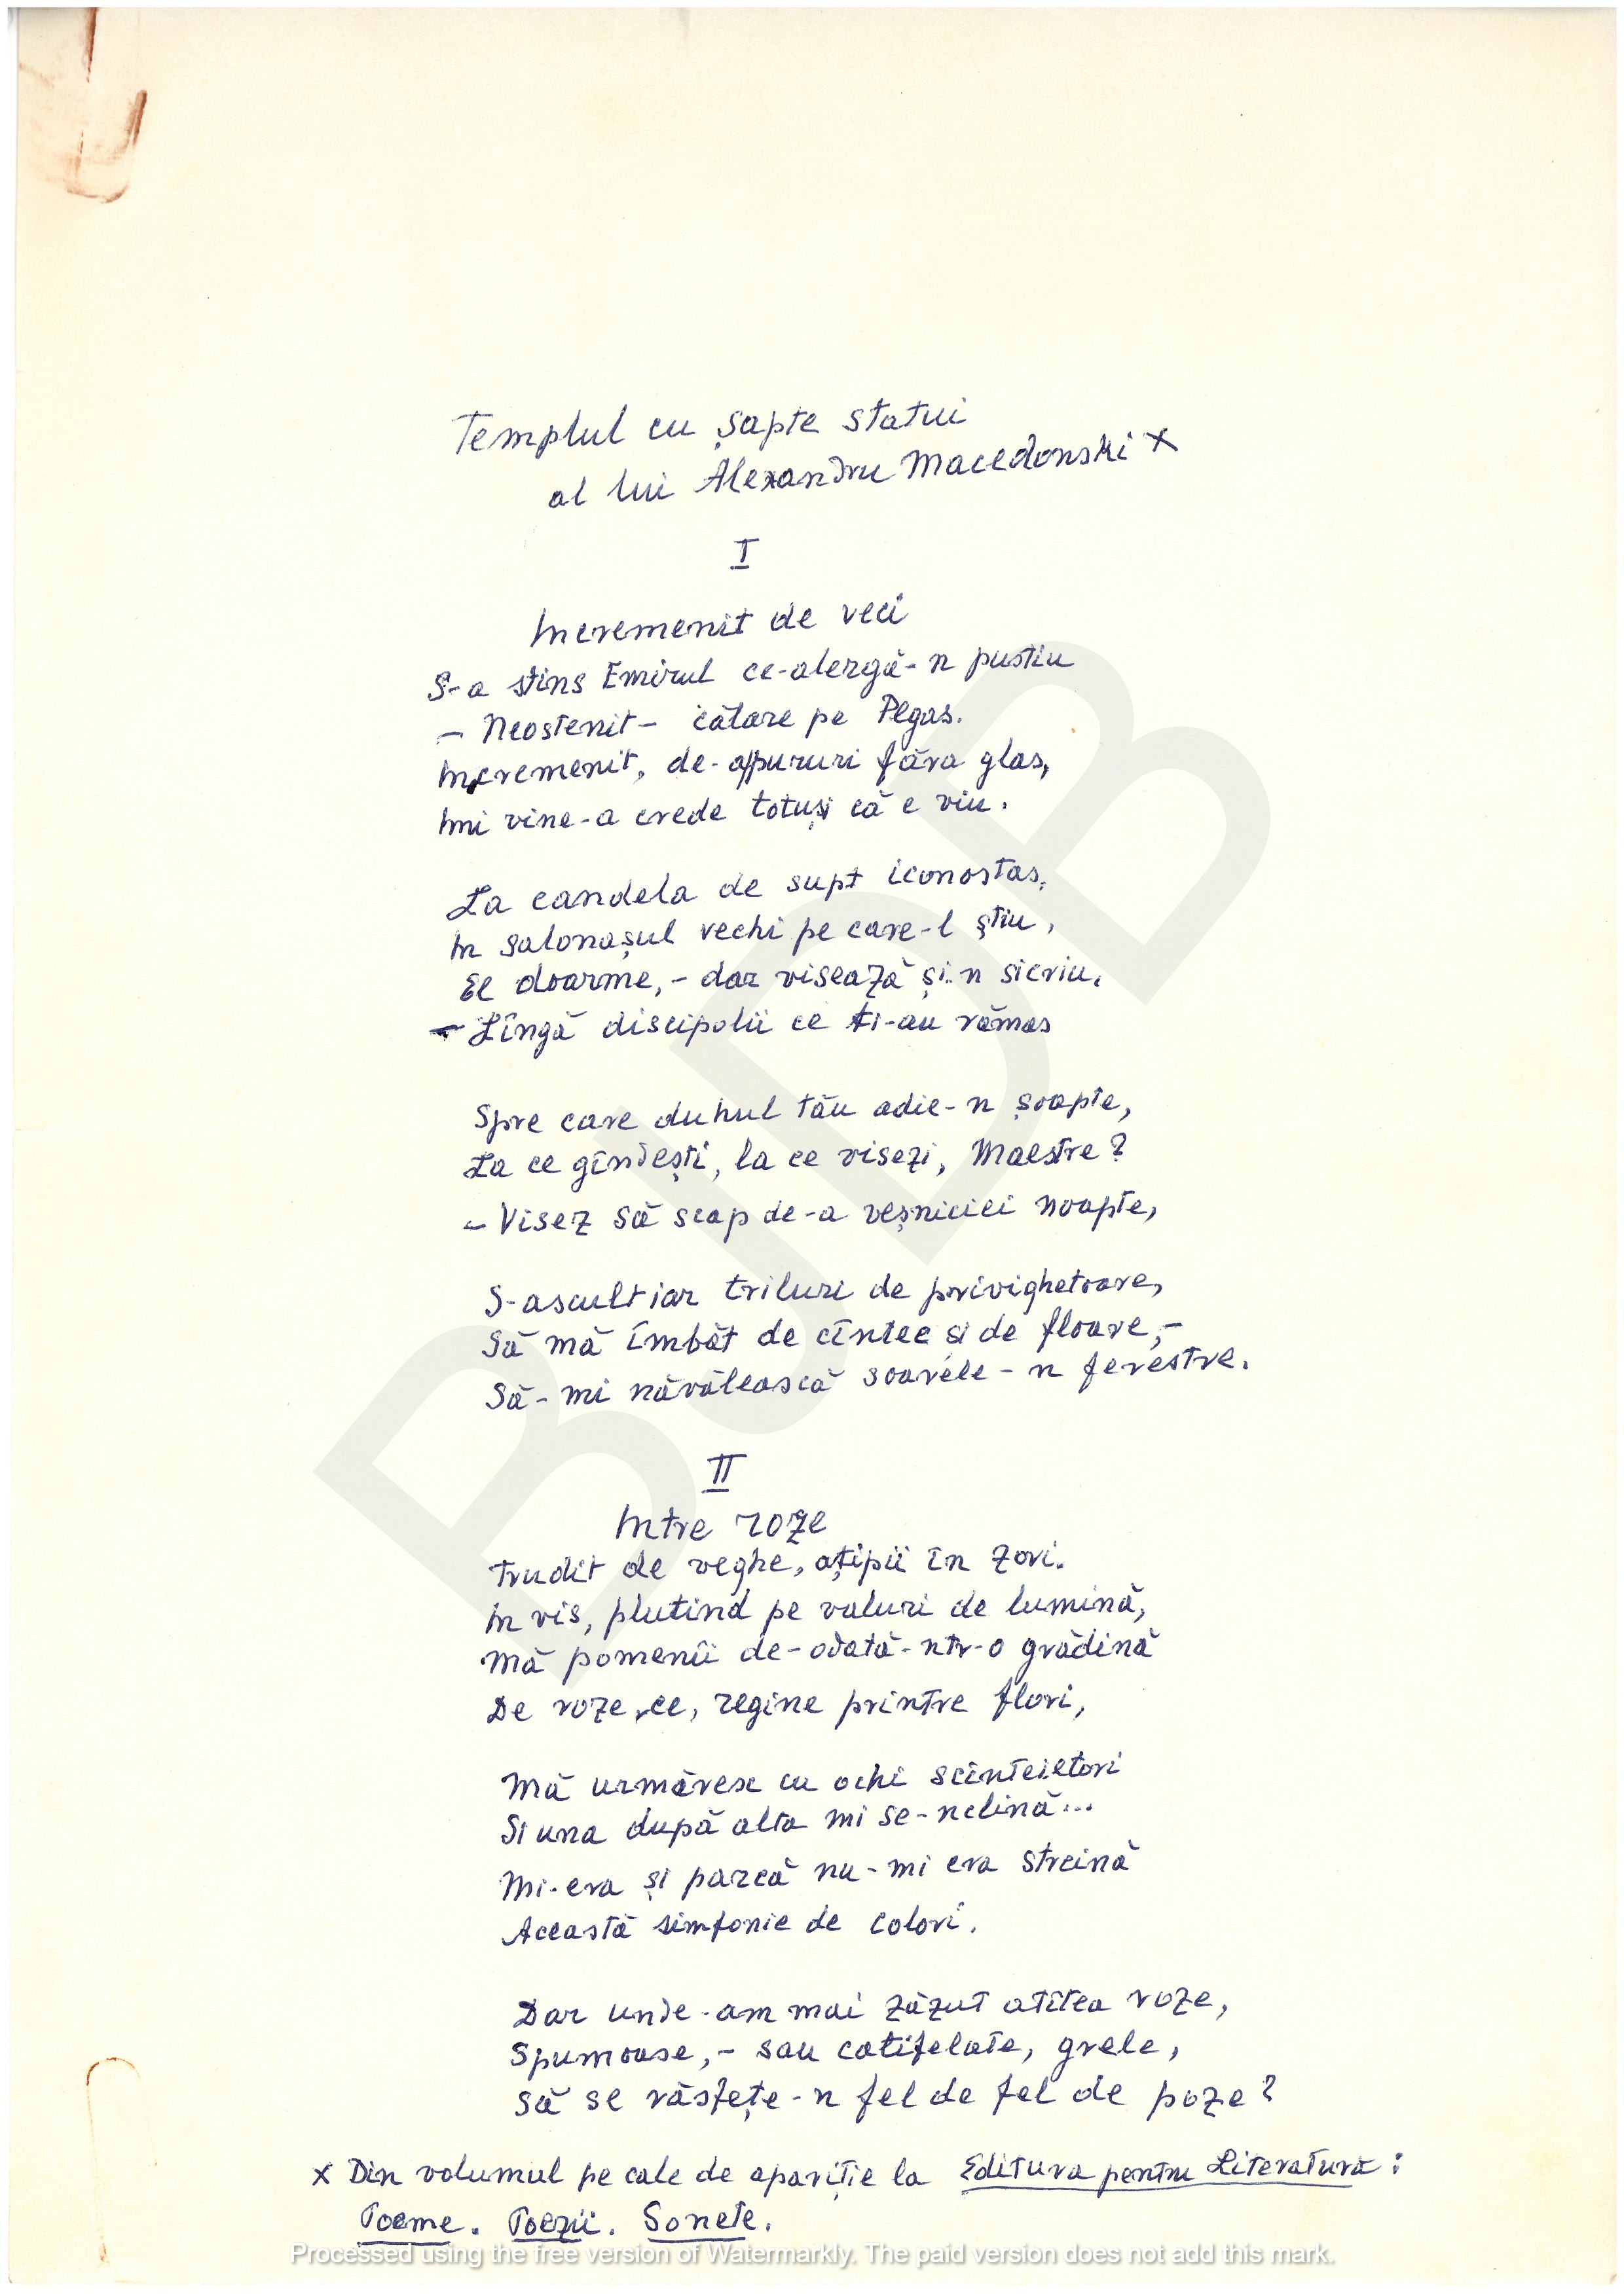 Templul cu șapte statui
al lui Alexandru Macedonski x
I
Incremenit de veci
S-a stins Emirul ce-alergă-n pustiu
- Neostenit - călare pe Pegas.
Incremenit, de-apururi făra glas,
Imi vine-a crede totuși că e viu.
La candela de supt iconostas,
In salonașul vechi pe care-l știu,
El doarme, - dar visează și-n sicriu.
- Lîngă discipolii ce ți-au rămas
Spre care duhul tău adie-n șoapte,
La ce gîndești, la ce visezi, Maestre?
- Visez să scap de-a veșniciei noapte,
S-ascult iar triluri de privighetoare,
Să mă îmbăt de cîntec și de floare, -
Să-mi năvălească soarele-n ferestre.
II
Intre roze
Trudit de veghe, ațipii în zori.
In vis, plutind pe valuri de lumină,
Mă pomenii de-odată-ntr-o grădină
De roze, ce, regine printre flori,
Mă urmăresc cu ochi scînteietori
Si una după alta mi se-nclină...
Mi-era și parcă nu-mi era streină
Această simfonie de colori.
Dar unde-am mai zăzut atîtea roze,
Spumoase, - sau catifelate, grele,
Să se răsfețe-n fel de fel de poze?
x Din volumul pe cale de apariție la Editura pentru Literatură:
Poeme. Poezii. Sonete.
BJDB
Processed using the free version of Watermarkly. The paid version does not add this mark.